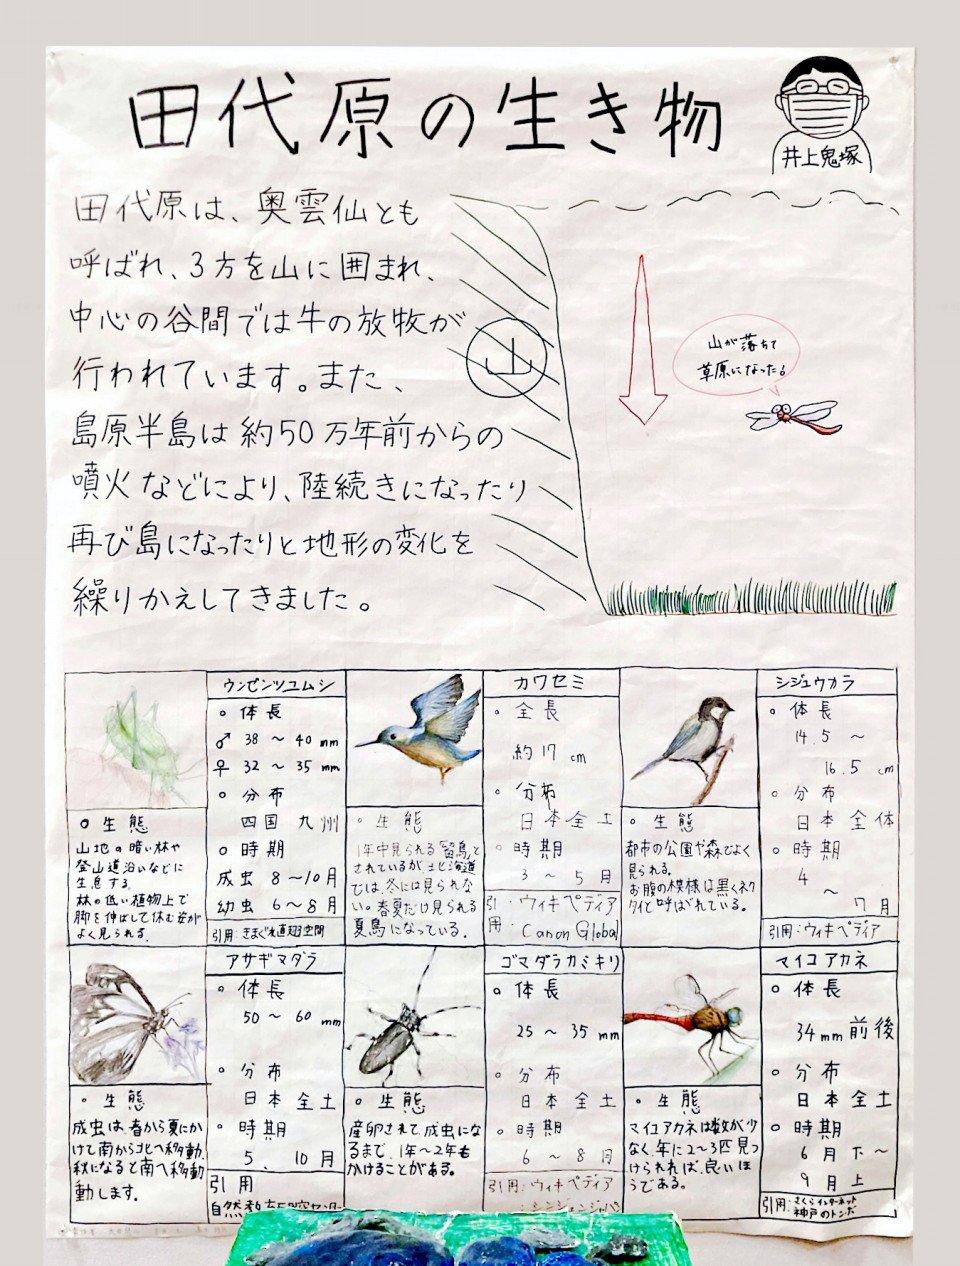 田代原の生き物
井上鬼塚
田代原は、奥雲仙とも
呼ばれ、3方を山に囲まれ、
中心の谷間では牛の放牧が
行われています。また、
島原半島は約50万年前からの
噴火などにより、陸続きになったり
再び島になったりと地形の変化を
繰りかえしてきました。
山
山が落ちて
草原になった。
ウンゼンツユムシ
○体長
♂ 38 ～ 40 mm
♀ 32 ～ 35 mm
○分布
四国 九州
○時期
成虫 8～10月
幼虫 6～8月
引用:きまぐれ直翅空間
○生態
山地の暗い林や
登山道沿いなどに
生息する。
林の低い植物上で
脚を伸ばして休む姿が
よく見られる。
カワセミ
○全長
約17cm
○分布
日本全土
○時期
3～5月
引用:ウィキペディア
Canon Global
○生態
1年中見られる「留鳥」と
されているが、北海道
では、冬には見られな
い。春夏だけ見られる
夏鳥になっている。
シジュウカラ
○体長
14.5～
16.5cm
○分布
日本全体
○時期
4
～
7月
引用:ウィキペディア
○生態
都市の公園や森でよく
見られる。
お腹の模様は黒くネク
タイと呼ばれている。
アサギマダラ
○体長
50～60mm
○分布
日本全土
○時期
5、10月
引用
○生態
成虫は、春から夏にか
けて南から北へ移動、
秋になると南へ移動
動します。
ゴマダラカミキリ
○体長
25～35mm
○分布
日本全土
○時期
6～8月
引用:ウィキペディア
:シンジェンジャパン
○生態
産卵されて成虫にな
るまで、1年～2年も
かけることがある。
マイコアカネ
○体長
34mm前後
○分布
日本全土
○時期
6月下～
9月上
引用:さくらインターネット
神戸のトンボ
○生態
マイコアカネは数が少
なく、年に2～3匹見つ
けられれば、良いほ
うである。